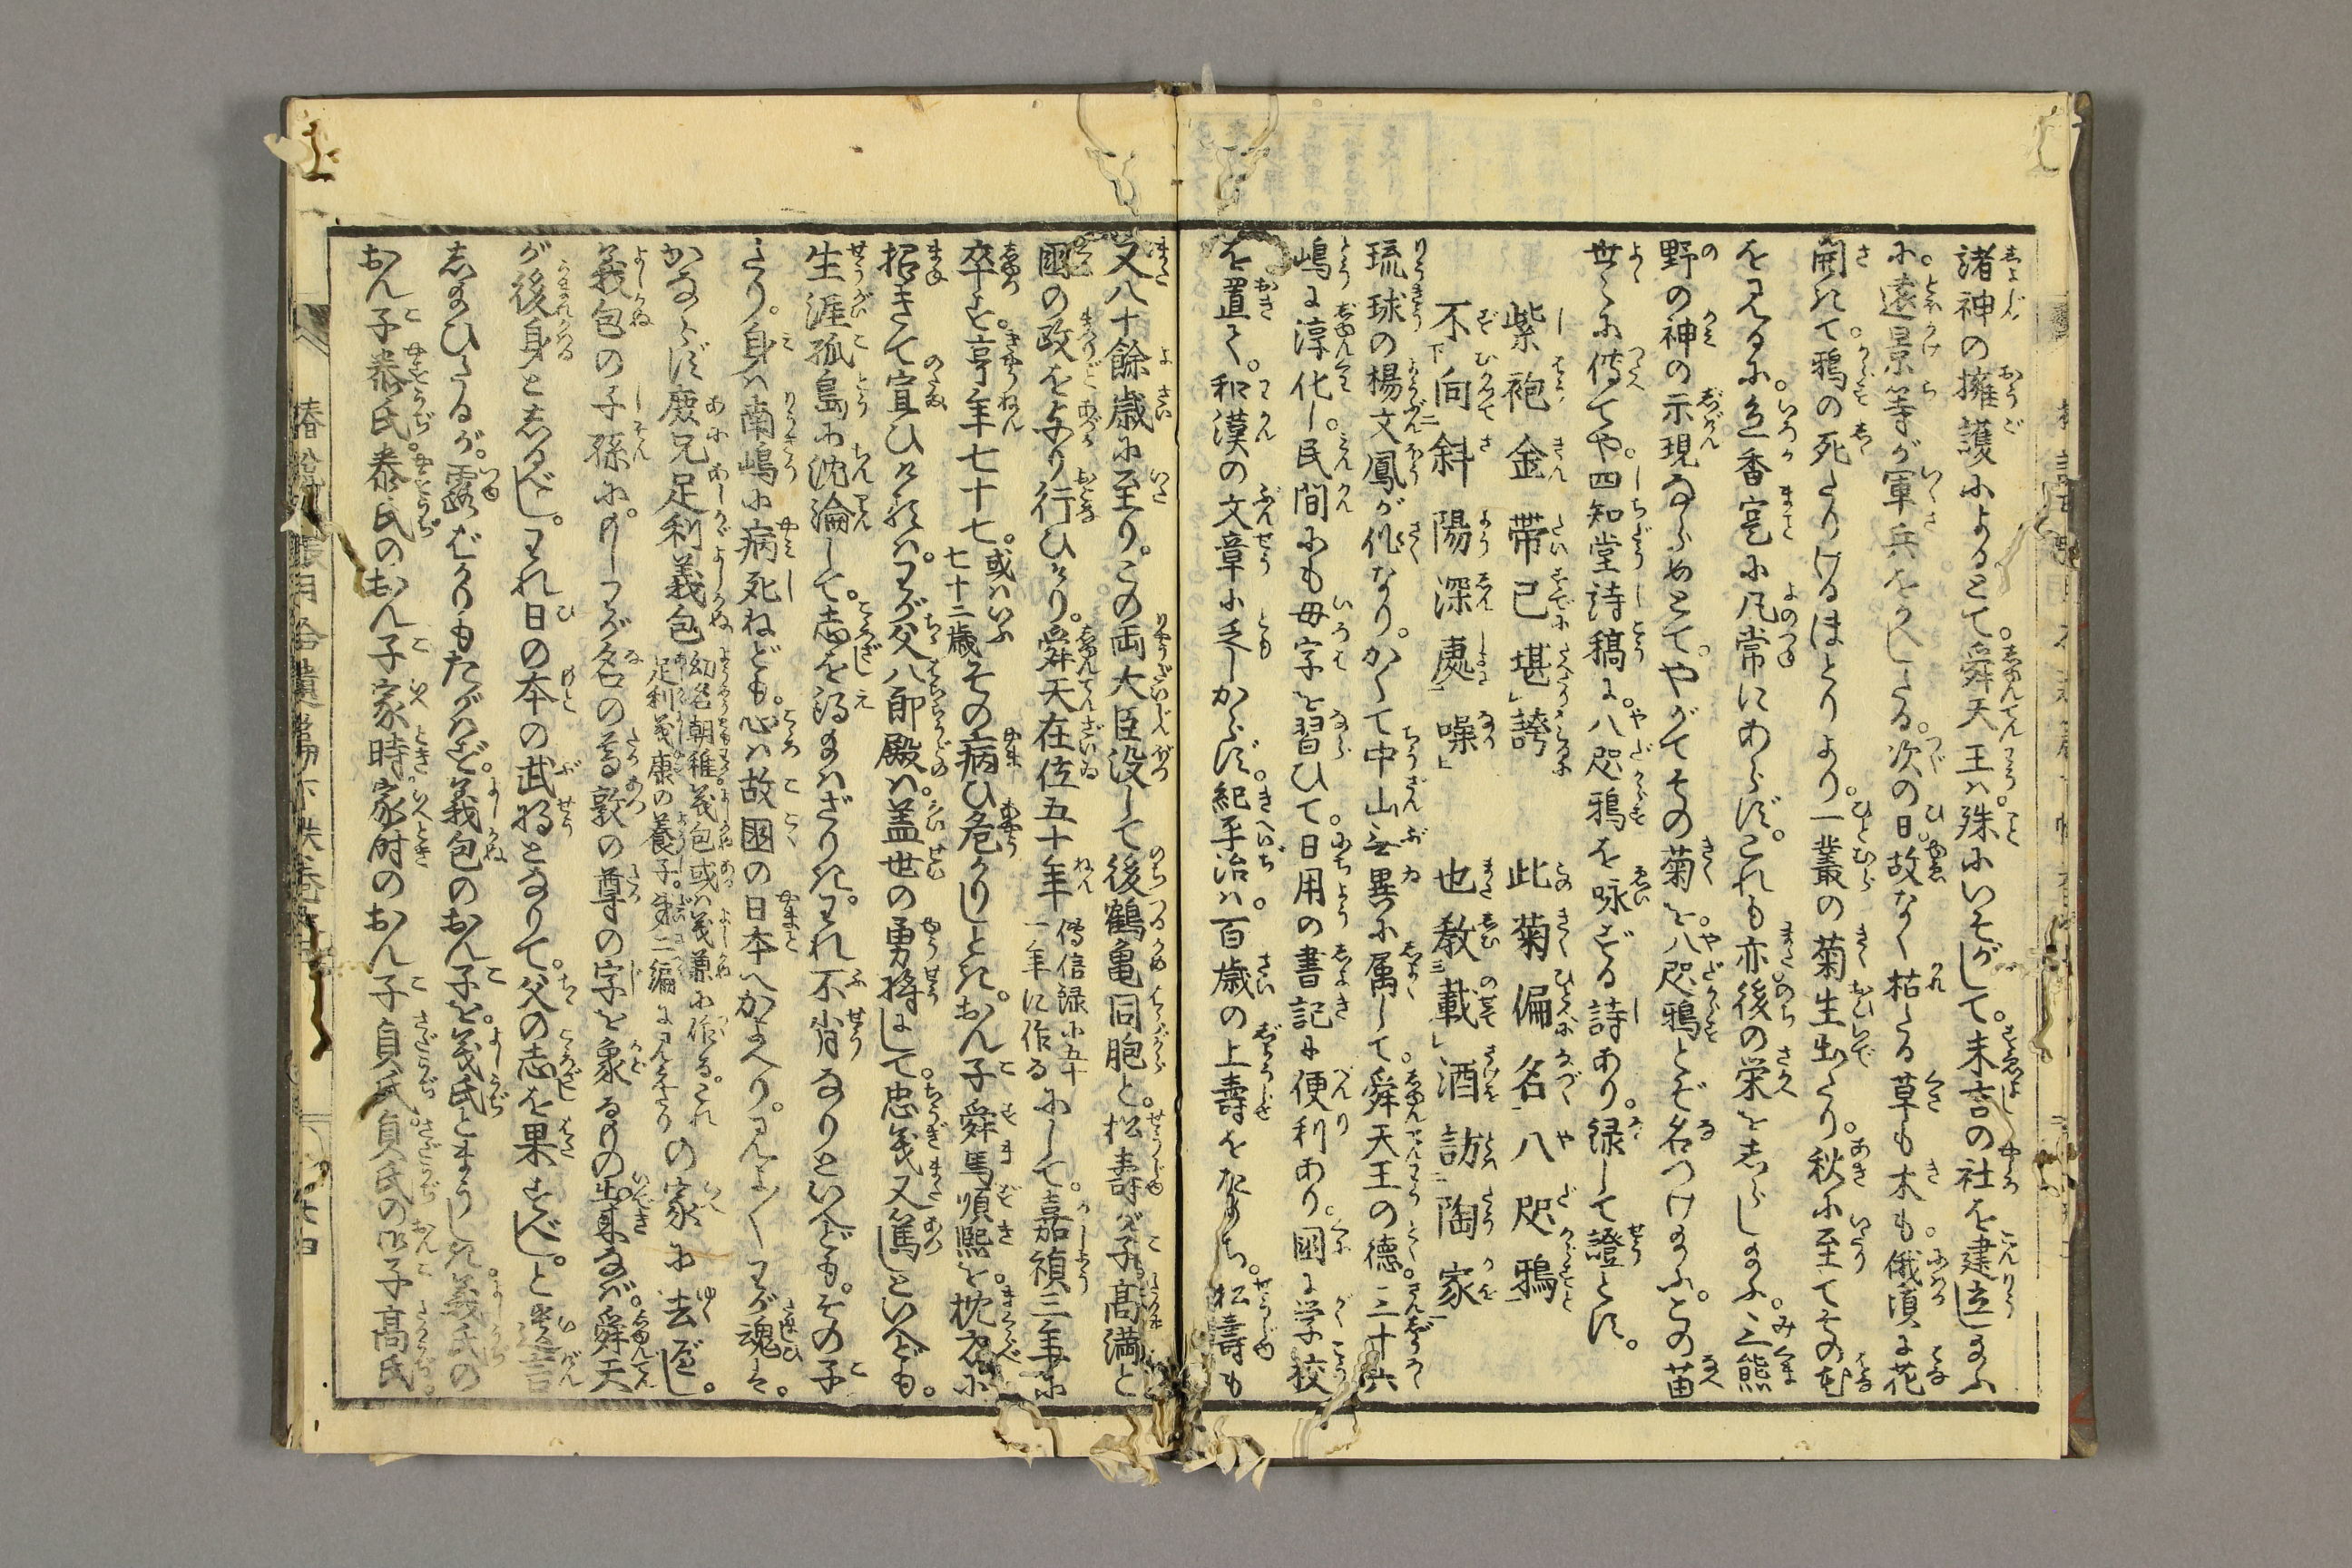 諸神の擁護によるとて。舜天王は殊にいそがして。末吉の社を建立し給ふ
に。遠景等が軍兵をかくしたる。次の日。故なく枯たる草も木も。俄頃に花
開きて。鴉の死たりけるほとりより。一叢の菊生出たり。秋に至てその花
を見るに。色香寔に凡常にあらず。これも亦後の栄をしらし給ふ。三熊
野の神の示現ならめとて。やがてその菊を。八咫鴉とぞ名つけ給ふ。この苗
世々に傳てや。四知堂詩稿に。八咫鴉を咏ずる詩あり。録して證とす。
紫袍金帯已堪誇　此菊偏名八咫鴉
不向斜陽深處噪　也教載酒訪陶家
琉球の楊文鳳が作なり。かくて中山無異に属して。舜天王の徳。三十六
嶋に淳化し。民間にも毋字を習ひて。日用の書記に便利あり。國に学校
を置て。和漢の文章に乏しからず。紀平治は。百歳の上壽をたもち。松壽も
又八十餘歳に至り。この両大臣没して後鶴亀同胞と。松壽が子高満と
國の政を与り行ひけり。舜天在位五十年傳信録に五十一年に作るにして。嘉禎三年に
卒す。享年七十七。或はいふ七十二歳その病ひ危かりしとき。おん子舜馬順熙を。枕方に
招きて宣ひけるは。わが父八郎殿は。蓋世の勇將にして。忠義又篤しといへども。
生涯孤島に沈淪して。志を得給はざりき。われ不肖なりといへども。その子
たり。身は南嶋に病死ねども。心は故國の日本へかよへり。見よ〳〵わが魂は。
かならず庶兄足利義包幼名朝稚。義包或は義兼に作る。これ足利義康の養子。第二編に見えたりの家に去べし。
義包の子孫に。もしわが名の尊敦の尊の字を象るもの出来なば。舜天
が後身としるべし。われ日の本の武将となりて。父の志を果すべし。と遺言
し給ひたるが。露ばかりもたがはず。義包のおん子を。義氏とまうしき。義氏の
おん子泰氏。泰氏のおん子家時家時のおん子貞氏。貞氏のおん子高氏